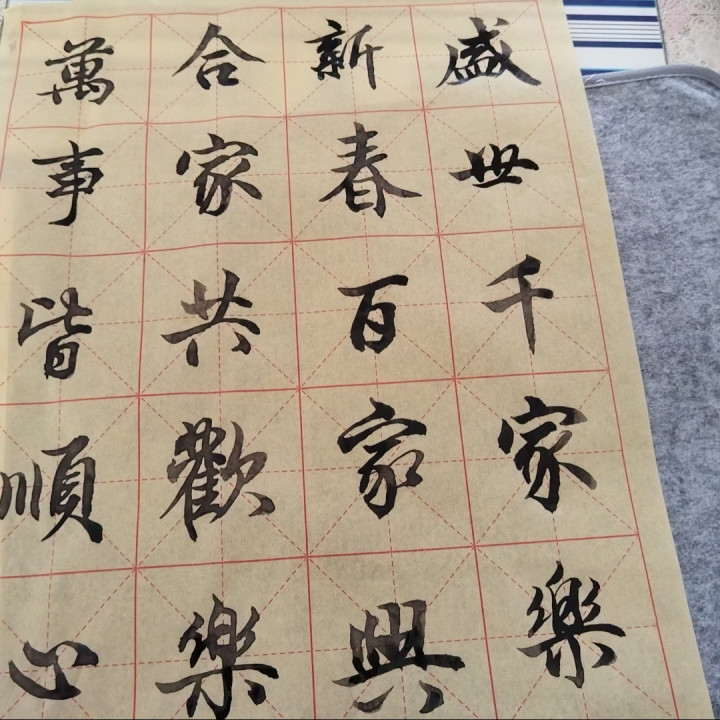 盛世千家樂
新春百家興
合家共歡樂
萬事皆順心